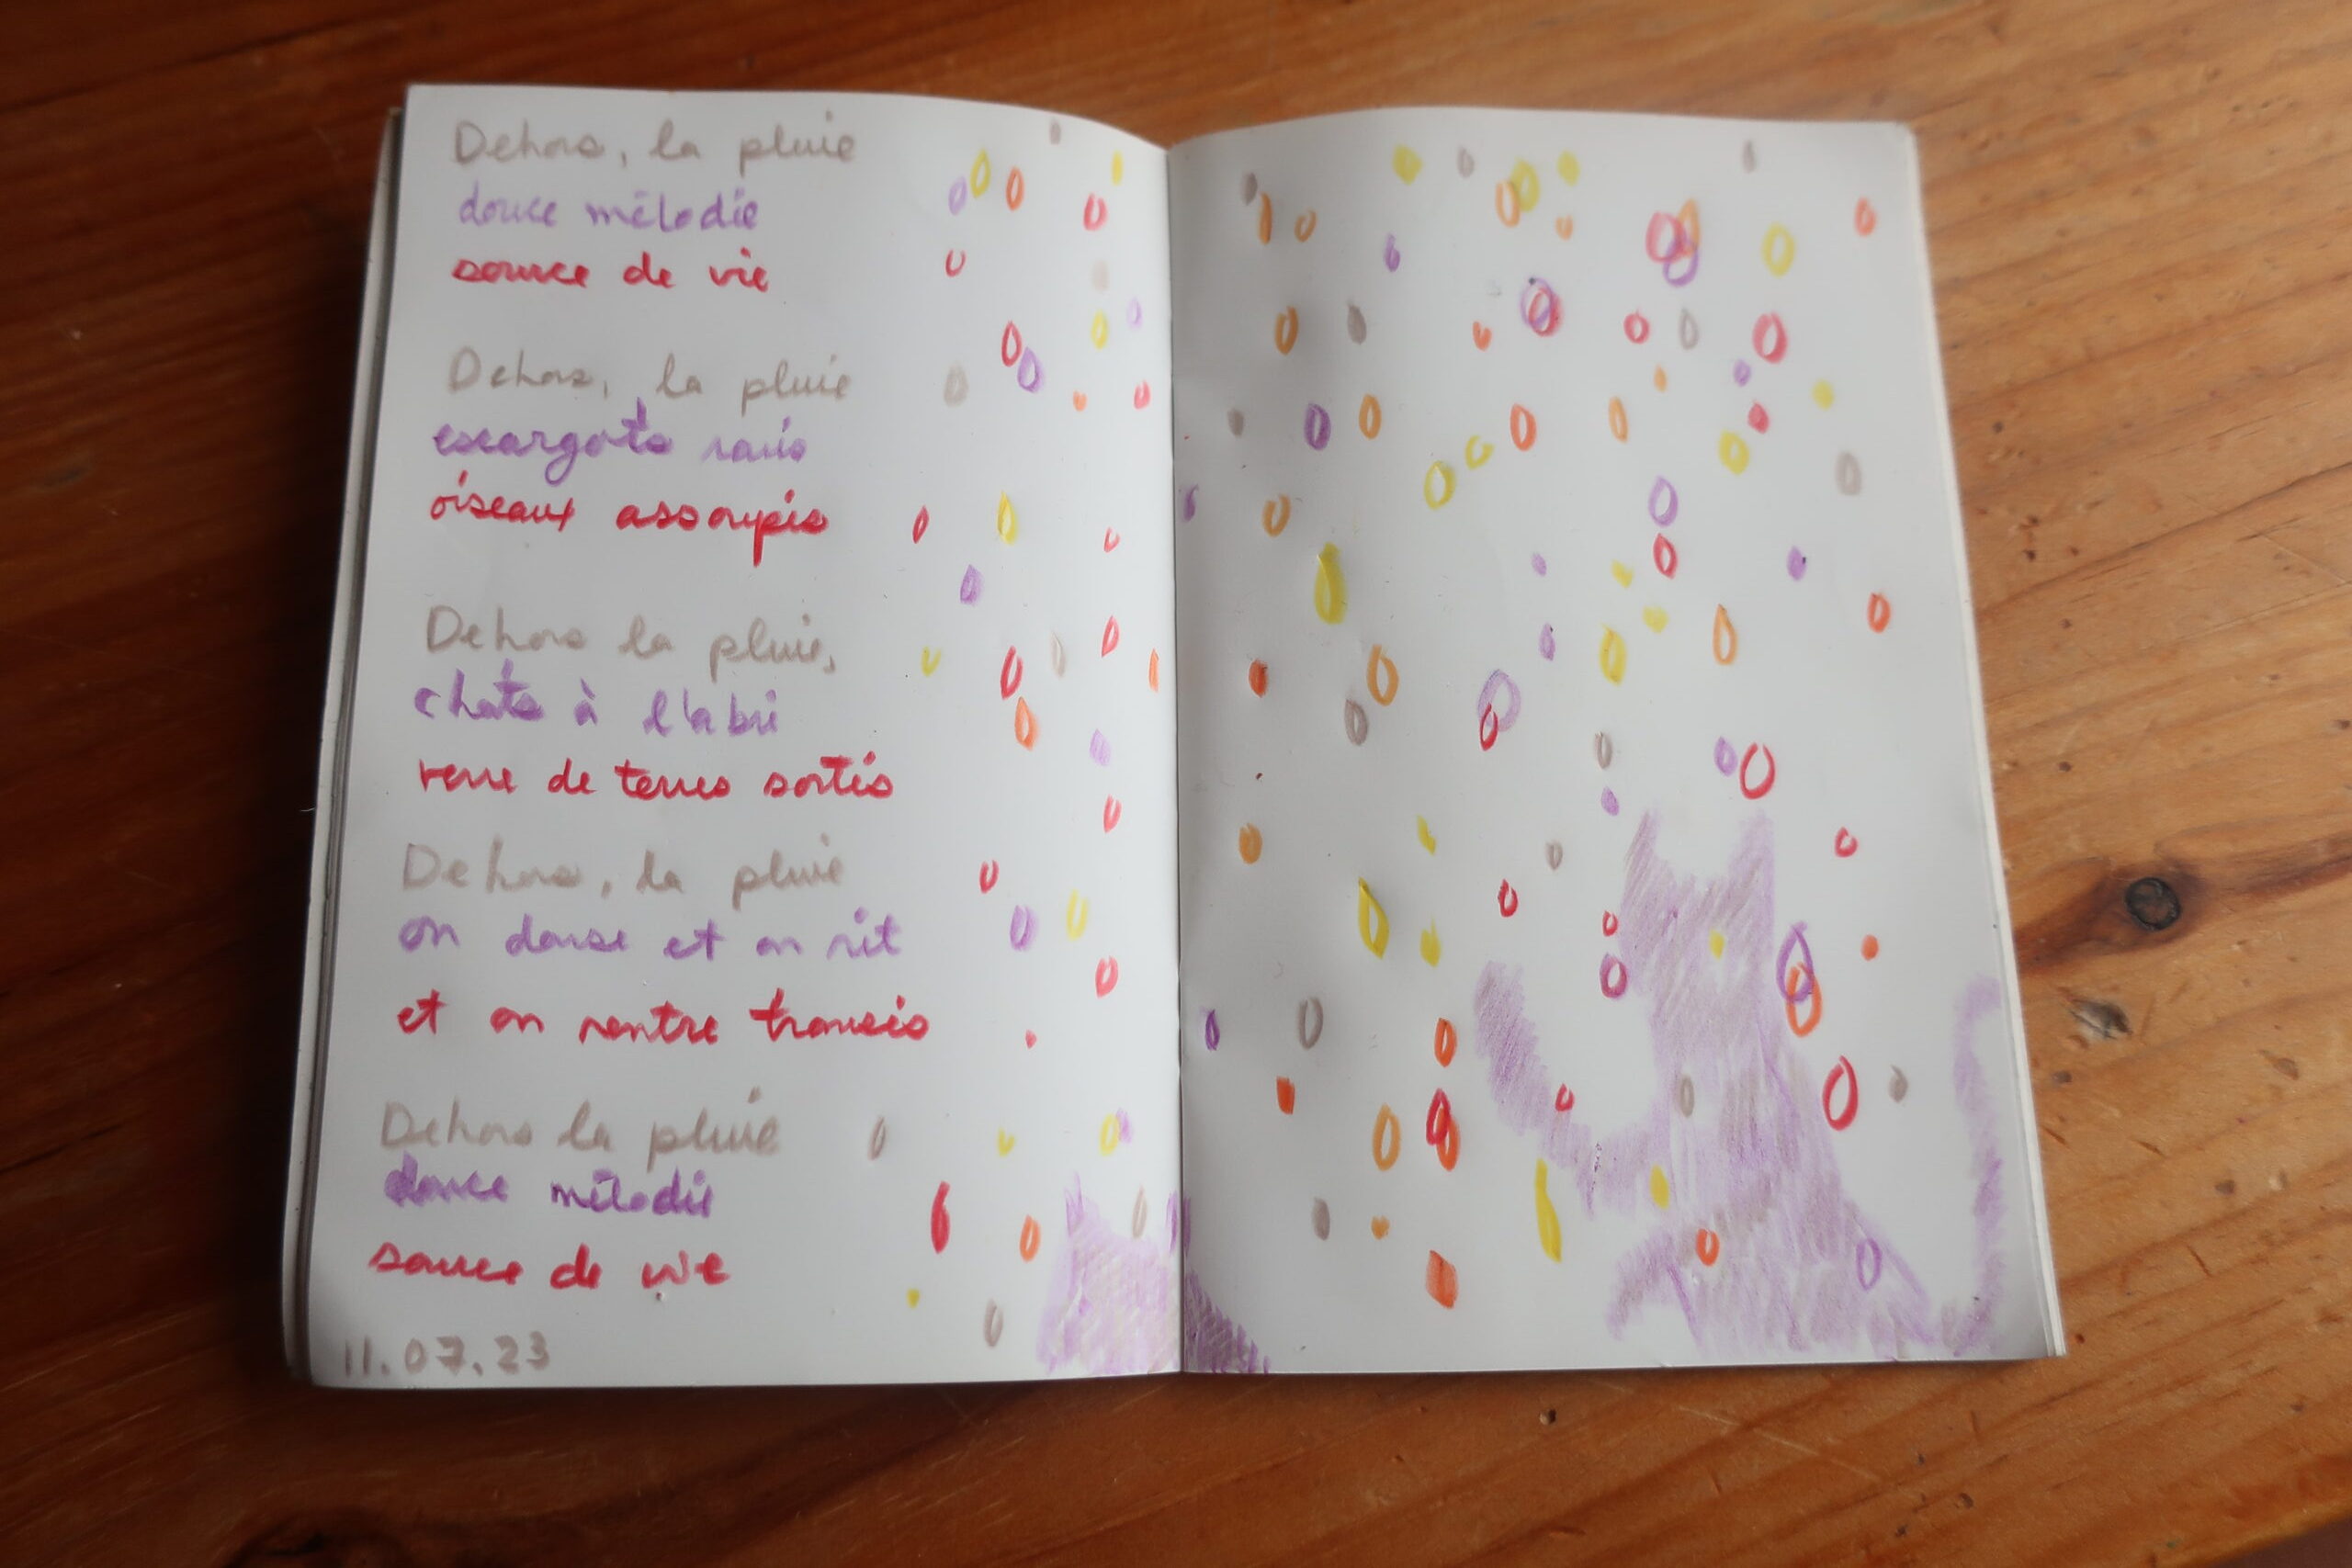 Dehors, la pluie
douce mélodie
source de vie
Dehors, la pluie
escargots ravis
oiseaux assoupis
Dehors la pluie,
chats à l'abri
verre de terres sortis
Dehors, la pluie
on danse et on rit
et on rentre transis
Dehors la pluie
douce mélodie
source de vie
11.07.23